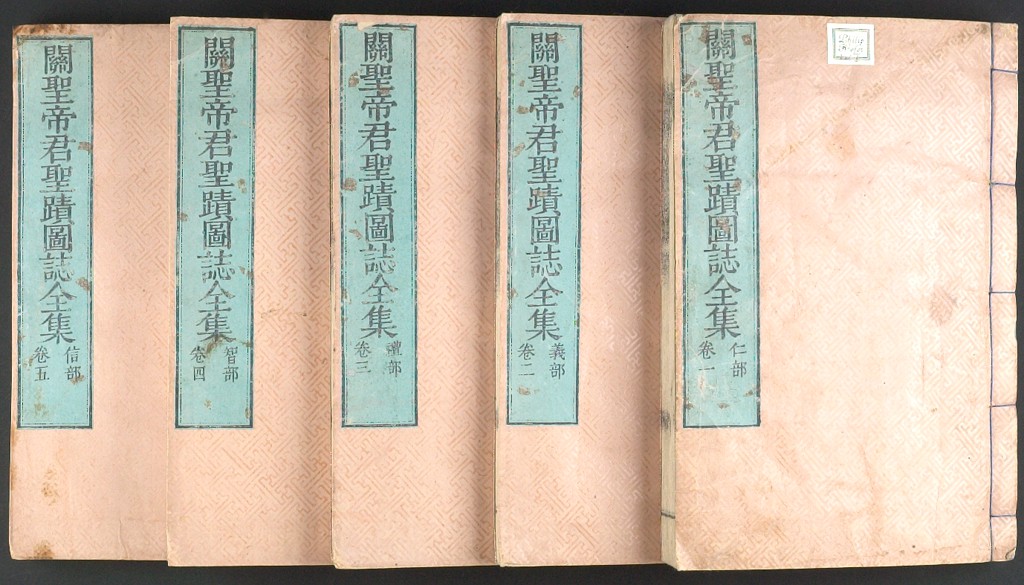 關聖帝君聖蹟圖誌全集
仁部
卷一
關聖帝君聖蹟圖誌全集
義部
卷二
關聖帝君聖蹟圖誌全集
禮部
卷三
關聖帝君聖蹟圖誌全集
智部
卷四
關聖帝君聖蹟圖誌全集
信部
卷五